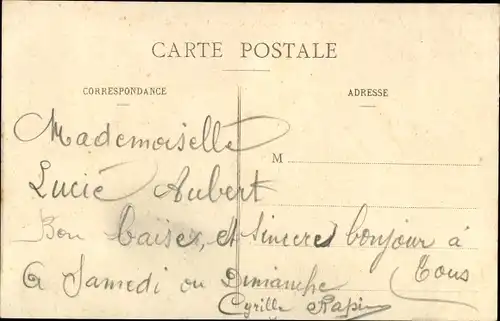 CARTE POSTALE
CORRESPONDANCE
ADRESSE
Mademoiselle
M
Lucie Aubert
Bon baiser, et sincères bonjour à
Tous
a Samedi ou Dimanche
Cyrille Rapin